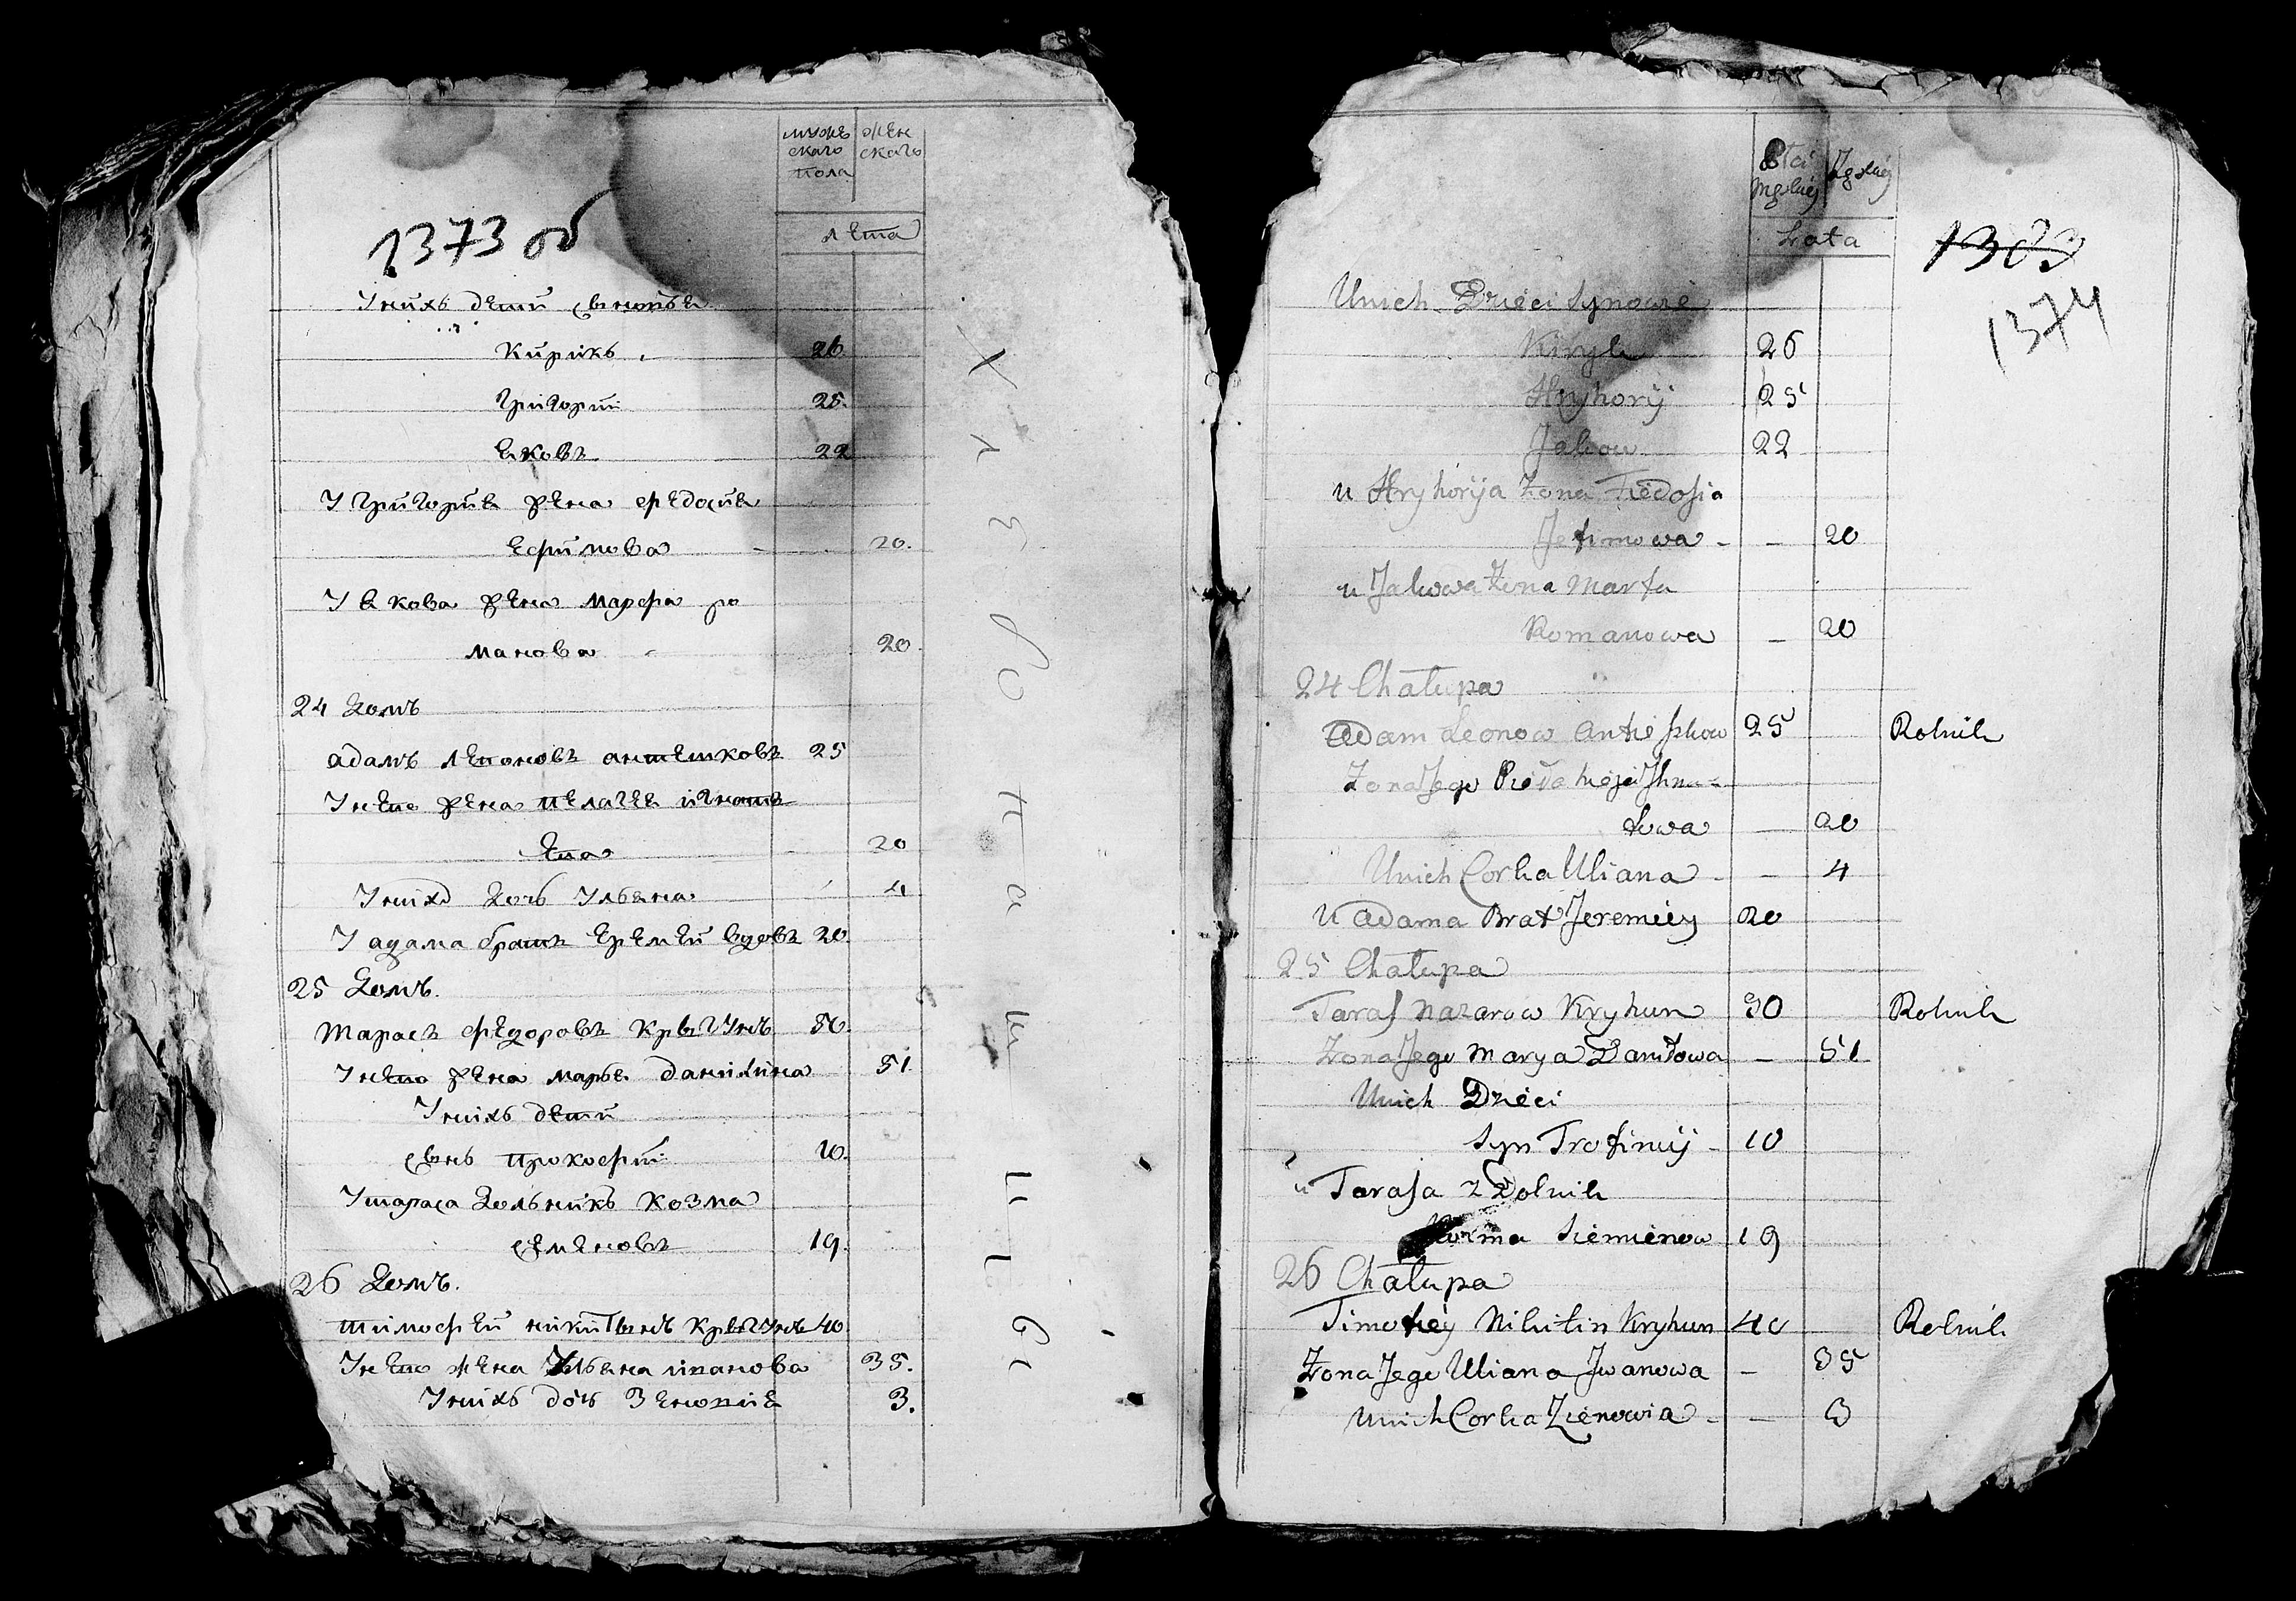 мужъ
скаго
пола
жен
скаго
лета
1373 об
Унихъ дети сыновья
Кирикъ
26
Григорий
25.
Яковъ
22
У Григория жена Федосия
Ефимова
20.
У Якова жена Марфа ро
манова
20.
24 Домъ
адамъ леоновъ антешковъ 25
Унего жена пелагея игнать
ева
20
Унихъ дочь Ульяна
4
У адама братъ Еремей вдовъ 20.
25 Домъ.
Тарасъ Федоровъ Крыгунъ 50.
Унего жена марья данилина
51.
Унихъ дети
сынъ прокофий
10.
Утараса дольникъ козма
семеновъ
19.
26 Домъ.
тимофей никитынъ Крыгунъ 40
Унего жена Ульяна иванова
35.
Унихъ дочь Зеновия
3.
Хлебопашецъ
Płci
Męzkiéj
Lata
1303
1374
Unich Dzieci Synowie
Kiryk
26
Hryhorÿ
25
Jakow
22
u Hryhorÿa Żona Fiedosia
Jefimowa - - 20
u Jakowa Żona Marfa
Romanowa - 20
24 Chałupa
Adam Leonow Antieszkow 25 Rolnik
Żona Jego Ihna=
towa - 20
Unich Corka Uliana - - 4
u Adama Brat Jeremiey 20
25 Chałupa
Taras Nazarow Kryhun 30 Rolnik
Żona Jego Marya Daniłowa - 51
Unich Dzieci
Syn Trofimij - 10
u Tarasa z Dolnik
Kozma Siemienow 19
26 Chałupa
Timofiey Nikitin Kryhun 40 Rolnik
Żona Jego Uliana Jwanowa - 35
Unich Corka Zienowia - - 3